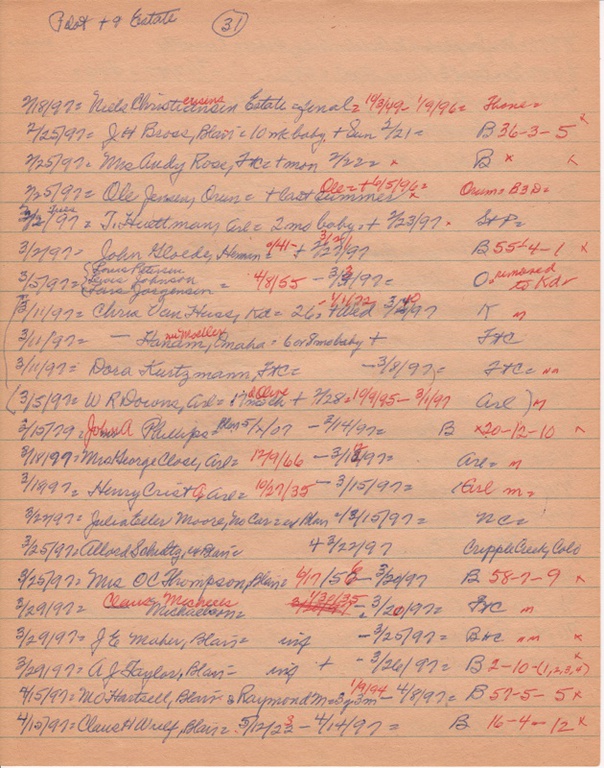 Pilot + 9 Estate (31)
2/18/97 = Niels Christiansen Estate = final = 10/3/49 - 1/9/96 =
2/25/97 = J H Bross, Blair = 10 mo baby, + Sun 2/21 = B 36-3-5 x
2/25/97 = Mrs Andy Rose, FtC = + mon 2/22 = x B x x
2/25/97 = Ole Jensen, Orum = + last summer Ole = + 6/5/96 = x Orum = B3D =
3/2/97 = T. Huettman, Arl = 2 mo baby = + 2/23/97 x
3/2/97 = John Gloede, Herman = + 2/27/97 B 55-4-1 x
3/5/97 = Louis Petersen Johnson Lars Jorgensen = 4/8/55 - 3/3/97 = O. removed to Kd
3/11/97 = Chris Van Huss, Kd = 26 = killed K m
3/11/97 = — Hansen, Omaha = 6 or 8 mo baby + FtC
3/11/97 = Dora Kurtzmann, FtC = - 3/8/97 = FtC = nm
(3/5/97 = W R Downs, Arl = 17 month + 2/28 = 10/9/95 - 3/1/97 Arl ) m
3/15/79 = John A Phillips = Blair 5/2/07 - 3/14/97 = B x 20-12-10 x
3/18/97 = Mrs George Close, Arl = 12/9/66 - 3/18/97 = Arl = m
3/19/97 = Henry Crist, Arl = 10/27/35 - 3/15/97 = Arl m =
3/22/97 = Julia Eller Moore, No Car = + 3/15/97 = NC =
3/25/97 = Allard Schultz, = + 3/22/97 Cripple Creek, Colo
3/25/97 = Mrs O C Thompson, Blair = 4/17/56 - 3/20/97 B 58-7-9 x
3/29/97 Claus Michaels Michaelson = 1/30/35 - 3/20/97 = FtC m
3/29/97 = J E Maher, Blair = inq - 3/25/97 = B + C nm x
3/29/97 = A J Taylor, Blair - inq + - 3/26/97 = B 2-10-(1,2,3,4) x
4/15/97 = M O Hartsell, Blair = Raymond M = 3y 3m 1/9/94 - 4/8/97 = B 57-5-5 x
4/15/97 = Claus H Wulf, Blair = 5/12/23 - 4/14/97 = B 16-4-12 x